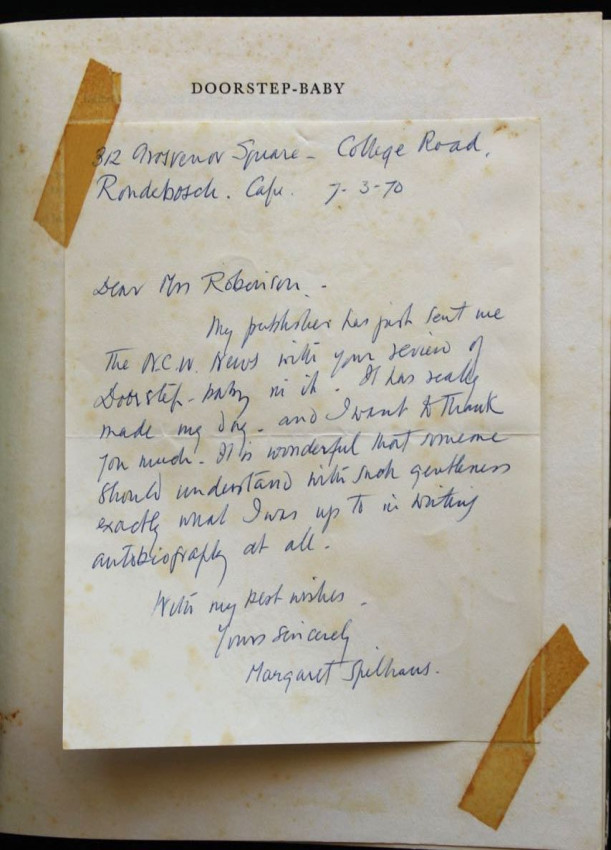 DOORSTEP-BABY
312 Grosvenor Square - College Road,
Rondebosch. Cape. 7-3-70
Dear Mrs Robinson. -
My publisher has just sent me
the N.C.W. News with your review of
Doorstep-baby in it. It has really
made my day - and I want to thank
you much. It is wonderful that someone
should understand with such gentleness
exactly what I was up to in writing
autobiography at all.
With my best wishes.
Yours sincerely
Margaret Spilhaus.